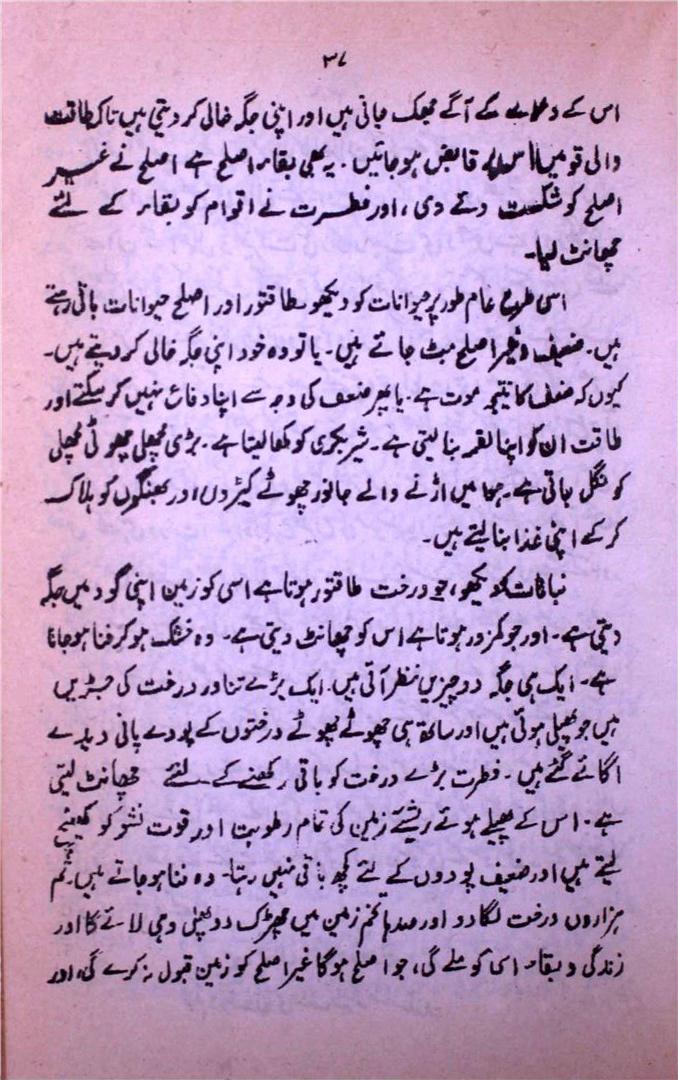 ۳۷
اس کے دھارے کے آگے جھک جاتی ہیں اور اپنی جگہ خالی کر دیتی ہیں تاکہ طاقت
والی قومیں اس پر قابض ہو جائیں۔ یہ بھی بقاء اصلح ہے اصلح نے غیر
اصلح کو شکست دے دی، اور فطرت نے اقوام کو بقاء کے لئے
چھانٹ لیا۔
اسی طرح عام طور پر حیوانات کو دیکھو۔ طاقتور اور اصلح حیوانات باقی رہتے
ہیں۔ ضعیف و غیر اصلح مٹ جاتے ہیں۔ یا تو وہ خود اپنی جگہ خالی کر دیتے ہیں۔
کیوں کہ ضعف کا نتیجہ موت ہے۔ یا پھر ضعف کی وجہ سے اپنا دفاع نہیں کر سکتے اور
طاقت ان کو اپنا لقمہ بنا لیتی ہے۔ شیر بکری کو کھا لیتا ہے۔ بڑی مچھلی چھوٹی مچھلی
کو نگل جاتی ہے۔ ہوا میں اڑنے والے جانور چھوٹے کیڑوں اور بھنگوں کو ہلاک
کر کے اپنی غذا بنا لیتے ہیں۔
نباتات کو دیکھو، جو درخت طاقتور ہوتا ہے اسی کو زمین اپنی گود میں جگہ
دیتی ہے۔ اور جو کمزور ہوتا ہے اس کو چھانٹ دیتی ہے۔ وہ خشک ہو کر فنا ہو جاتا
ہے۔ ایک ہی جگہ دو چیزیں نظر آتی ہیں۔ ایک بڑے تناور درخت کی جڑیں
ہیں جو پھیلی ہوئی ہیں اور ساتھ ہی چھوٹے چھوٹے درختوں کے پودے پانی دیدے
اگائے گئے ہیں۔ فطرت بڑے درخت کو باقی رکھنے کے لئے چھانٹ لیتی
ہے۔ اس کے پھیلے ہوئے ریشے زمین کی تمام رطوبت اور قوت نشو کو کھینچ
لیتے ہیں اور ضعیف پودوں کے لئے کچھ باقی نہیں رہتا۔ وہ فنا ہو جاتے ہیں۔ تم
ہزاروں درخت لگا دو اور صدہا تخم زمین میں چھڑک دو پھل وہی لائے گا اور
زندگی و بقاء اسی کو ملے گی، جو اصلح ہوگا غیر اصلح کو زمین قبول نہ کرے گی، اور